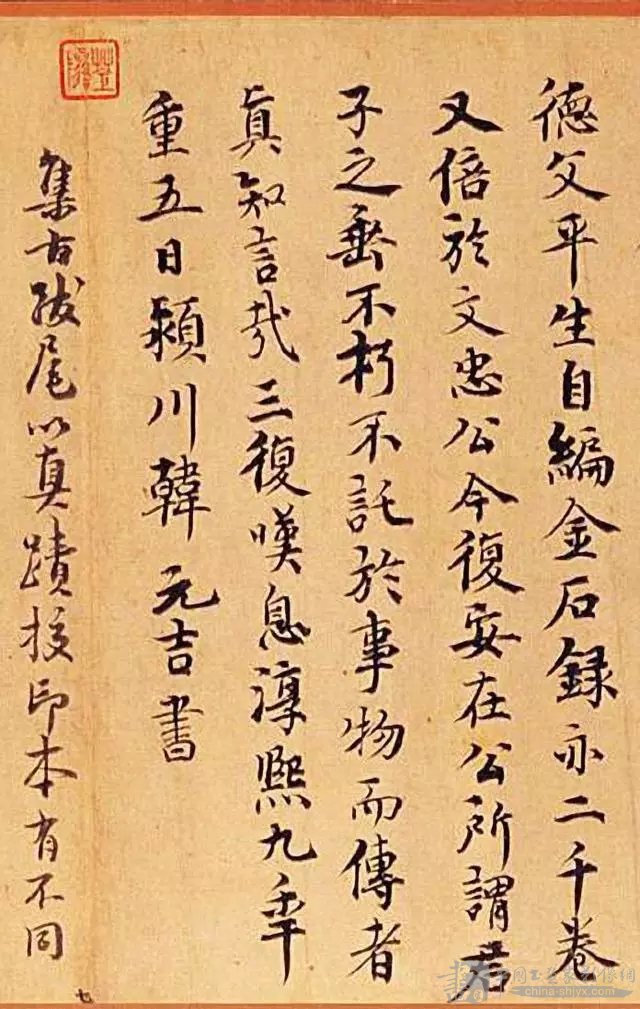 德父平生自編金石録亦二千卷
又倍於文忠公今復安在公所謂君
子之垂不朽不託於事物而傳者
真知言哉三復嘆息淳熙九年
重五日潁川韓元吉書
集古跋尾以真蹟校印本有不同
七
china-shjyx.com